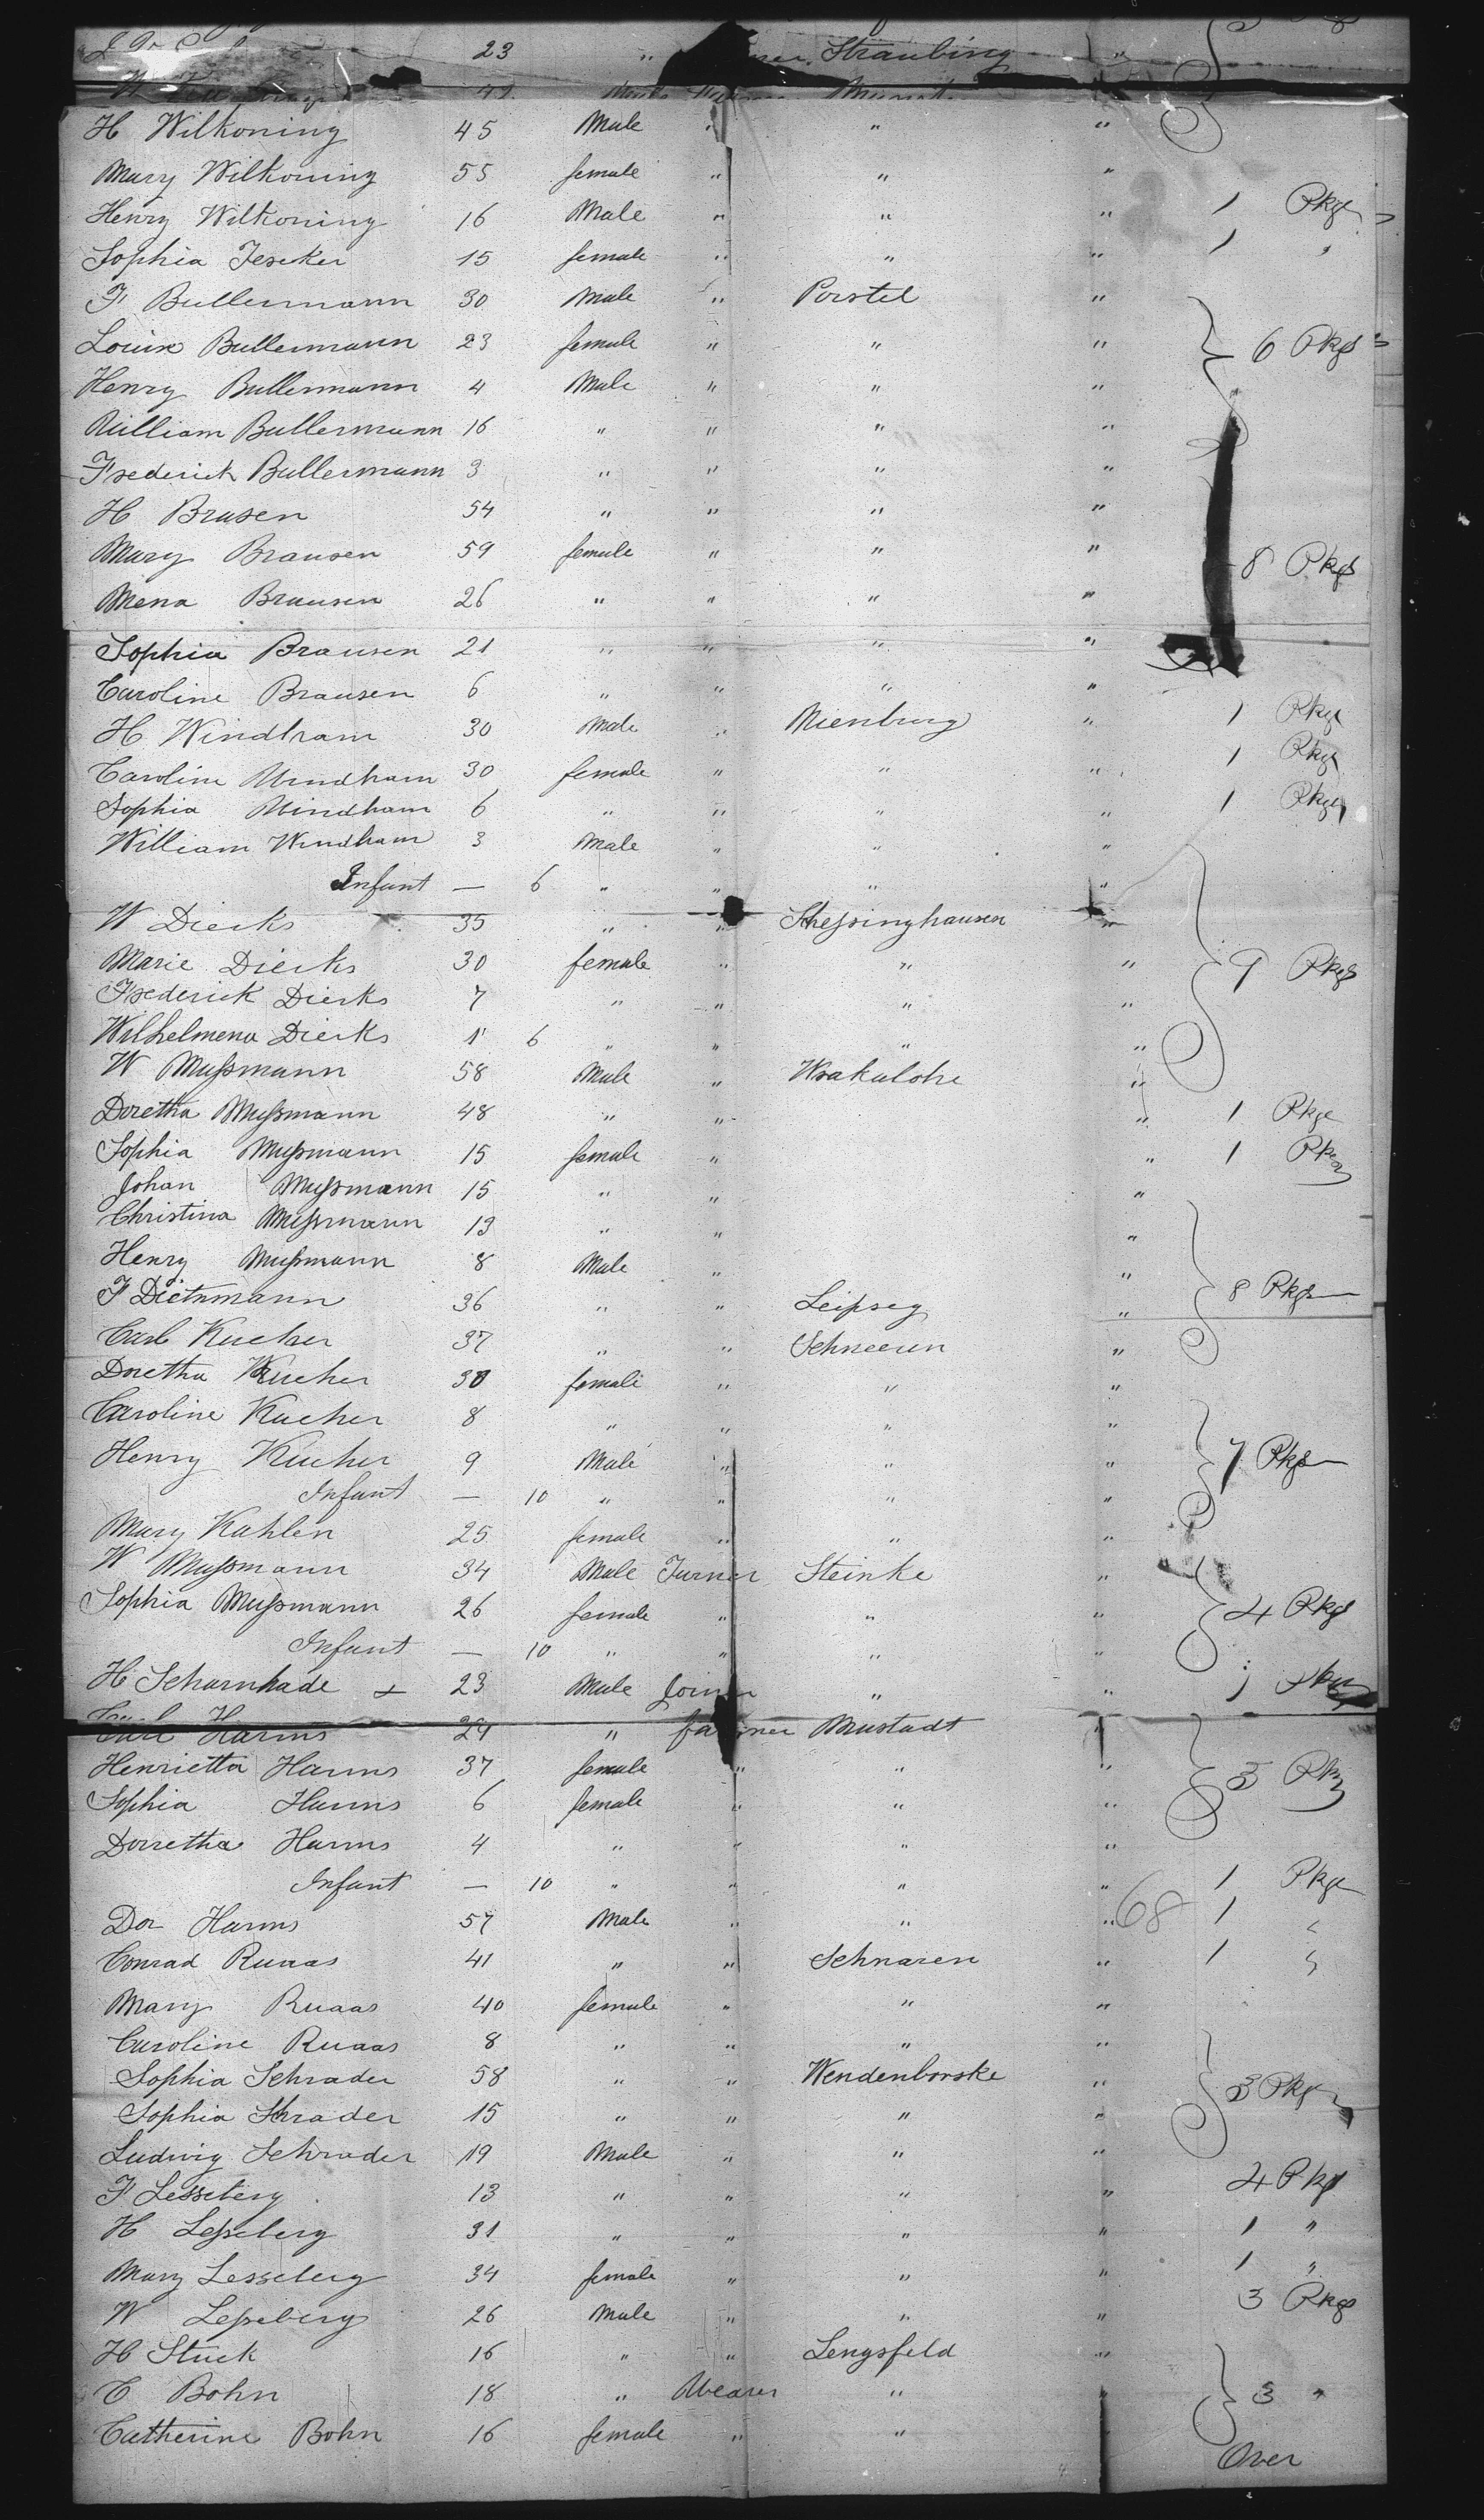 23 " Straubing "
H Wilkoning 45 Male " " "
Mary Wilkoning 55 female " " "
Henry Wilkoning 16 Male " " " 1 Pkge
Sophia Jeseker 15 female " " " 1 "
F Bullermann 30 Male " Porstel "
Louise Bullermann 23 female " " " 6 Pkgs
Henry Bullermann 4 Male " " "
William Bullermann 16 " " " "
Frederick Bullermann 3 " " " "
H Brasen 54 " " " "
Mary Brausen 59 female " " " 8 Pkgs
Mena Brausen 26 " " " "
Sophia Brausen 21 " " " "
Caroline Brausen 6 " " " "
H Windham 30 Male " Nienburg " 1 Pkge
Caroline Windham 30 female " " " 1 Pkge
Sophia Windham 6 " " " " 1 Pkge
William Windham 3 Male " " "
Infant — 6 " " " "
W Dierks 35 " " Stressinghausen "
Marie Dierks 30 female " " " 9 Pkgs
Frederick Dierks 7 " " " "
Wilhelmena Dierks 1 6 " " " "
W Mussmann 58 Male " Wrakalohe "
Doretha Mussmann 48 " " " 1 Pkge
Sophia Mussmann 15 female " " 1 Pkge
Johan Mussmann 15 " " "
Christina Mussmann 13 " " "
Henry Mussmann 8 Male " "
F Dietnmann 36 " " Leipseg " 8 Pkgs
Carl Kucher 37 " " Schneeren "
Doretha Kucher 30 female " " "
Caroline Kucher 8 " " " "
Henry Kucher 9 Male " " " 7 Pkgs
Infant — 10 " " " "
Mary Kahlen 25 female " " "
W Mussmann 34 Male Turner Steinke "
Sophia Mussmann 26 female " " " 4 Pkgs
Infant — 10 " " " "
H Scharnhade 23 Male Joiner " " 1
Carl Harms 29 " farmer Mustadt "
Henrietta Harms 37 female " " " 3 Pkgs
Sophia Harms 6 female " " "
Dorretha Harms 4 " " " "
Infant — 10 " " " " 1 Pkge
Dor Harms 57 Male " " " 68 1 "
Conrad Ruaas 41 " " Schnaren " 1 "
Mary Ruaas 40 female " " "
Caroline Ruaas 8 " " " "
Sophia Schrader 58 " " Wendenborske " 3 Pkgs
Sophia Schrader 15 " " " "
Ludwig Schrader 19 Male " " "
F Lesseberg 13 " " " " 4 Pkgs
H Lesseberg 31 " " " " 1 "
Mary Lesseberg 34 female " " " 1 "
W Lesseberg 26 Male " " " 3 Pkgs
H Stuck 16 " " Lengsfeld "
C Bohn 18 " Weaver " " 3 "
Catherine Bohn 16 female " "
Over